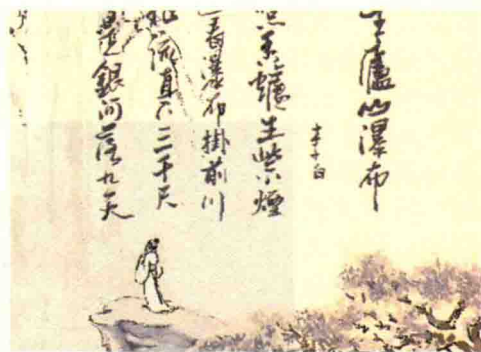 廬山瀑布
李白
香爐生紫煙
看瀑布掛前川
流直下三千尺
是銀河落九天